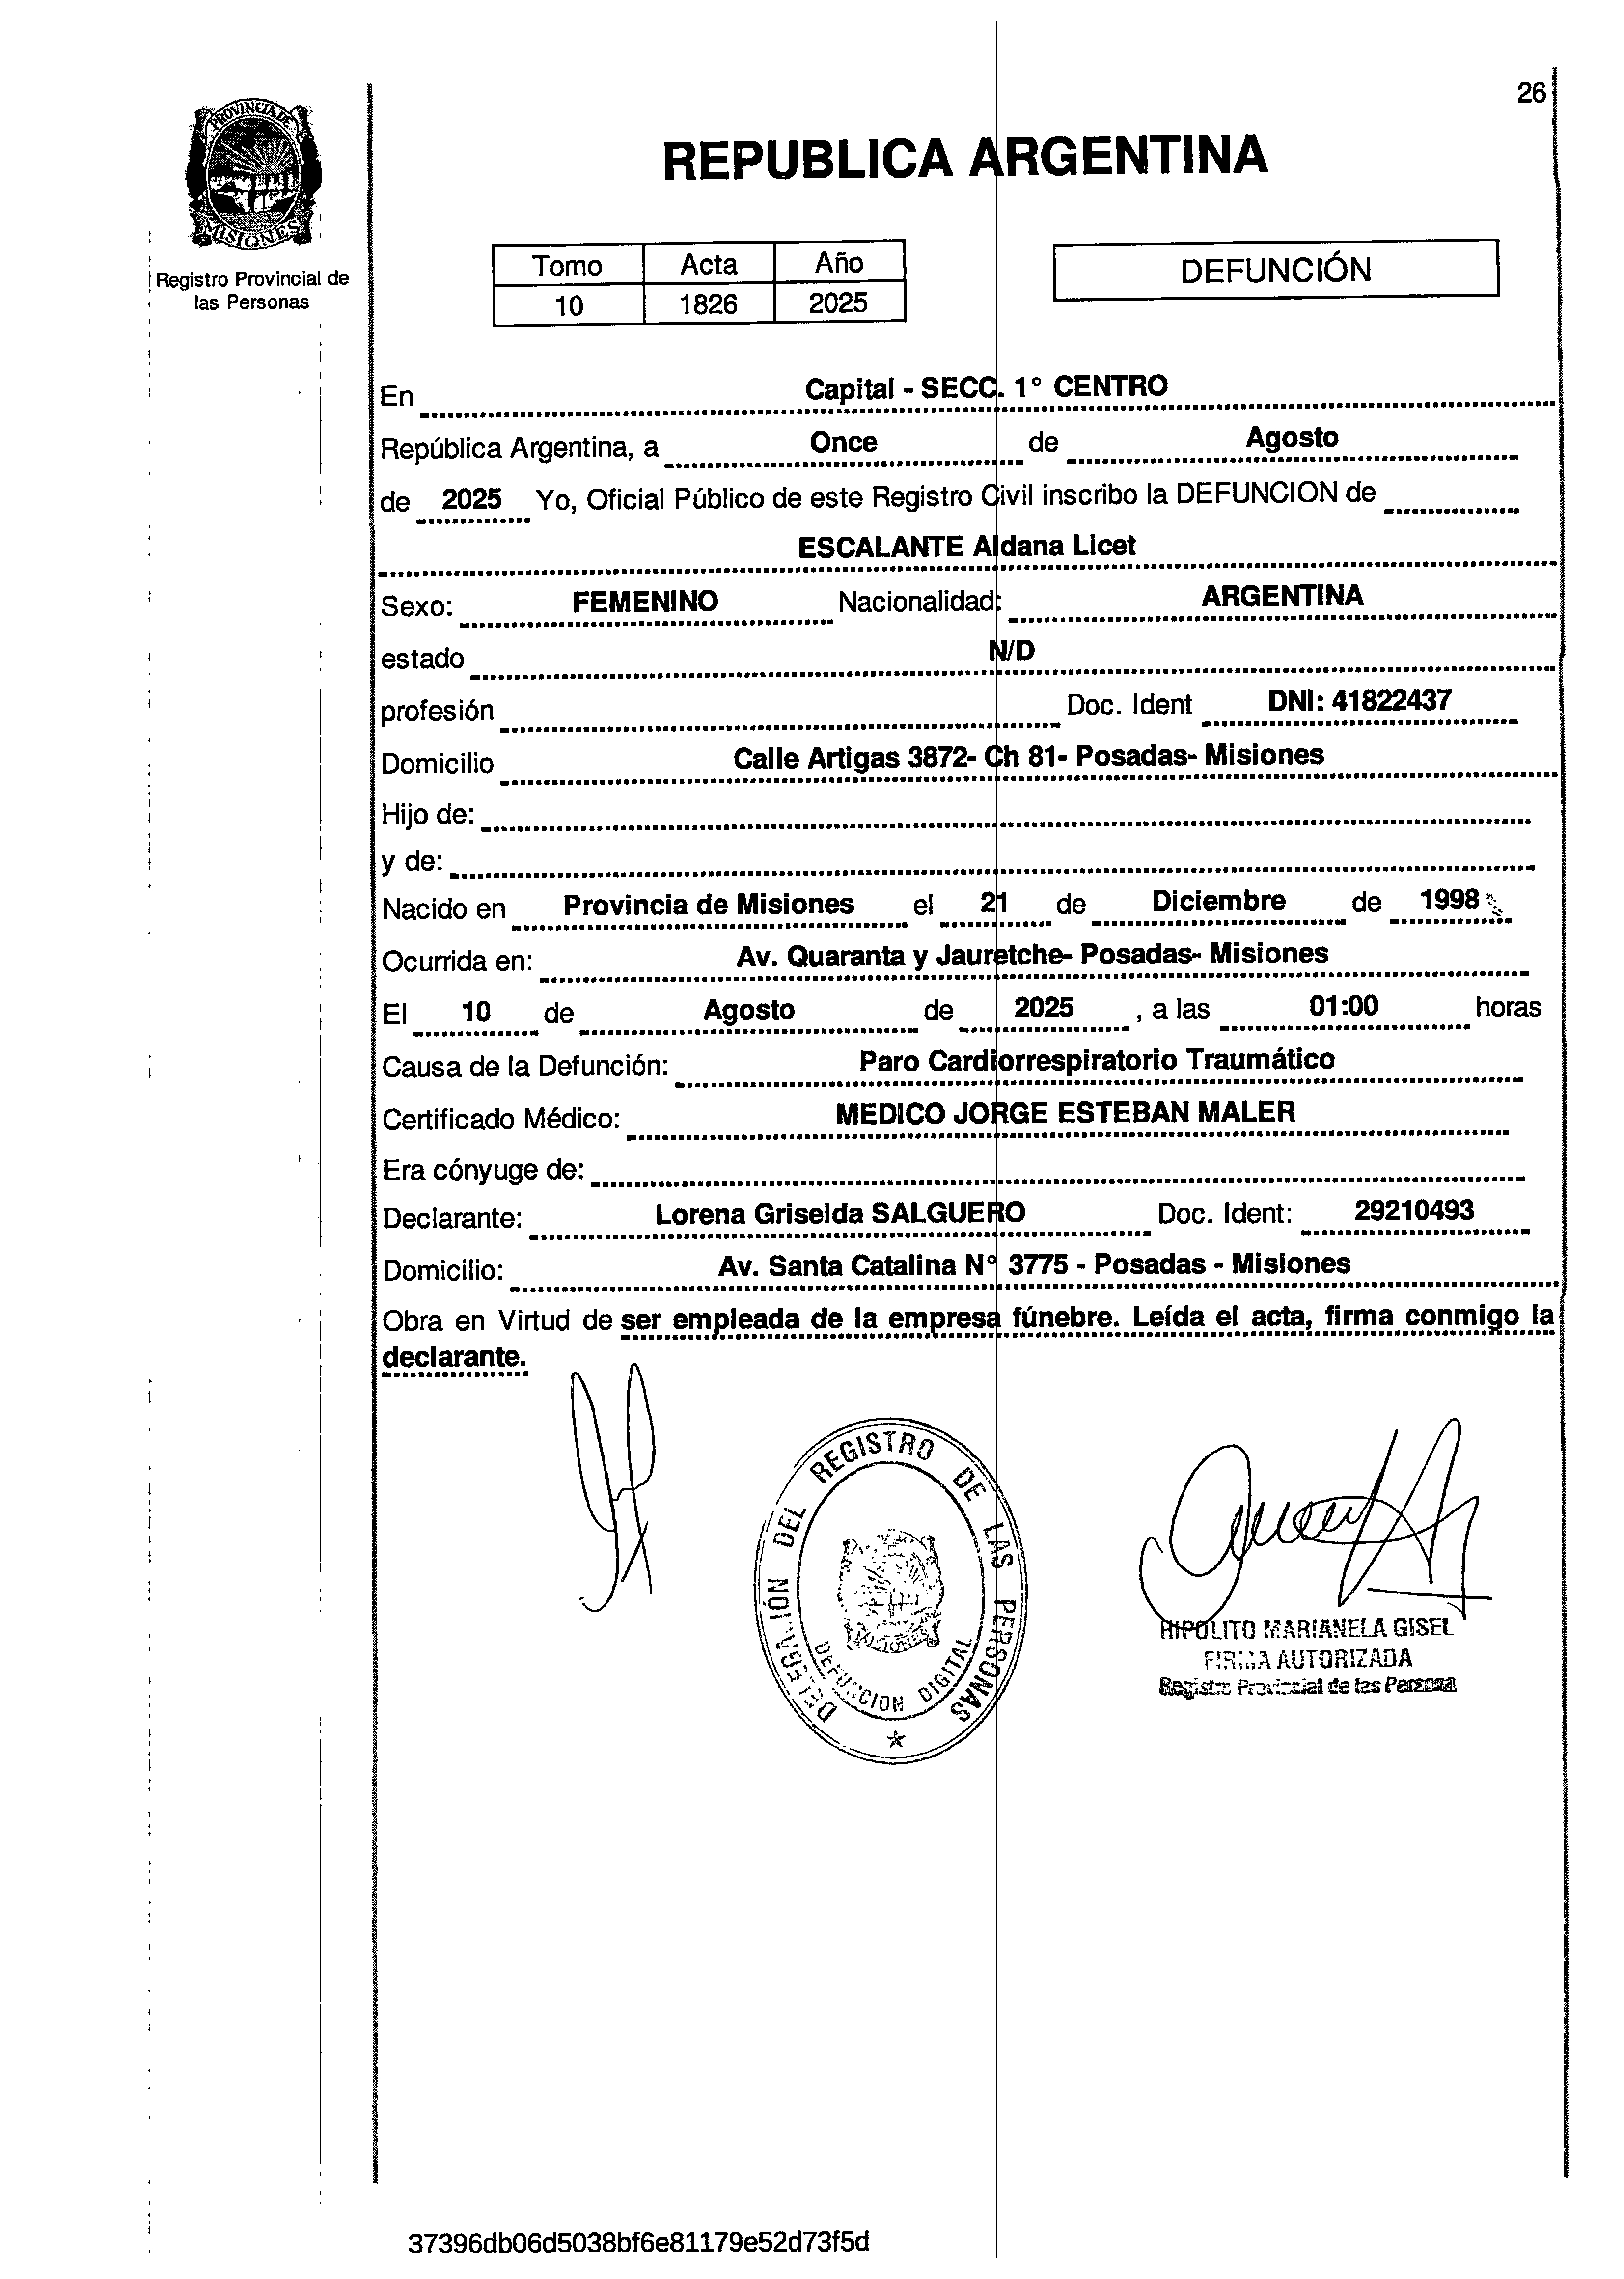 26
PROVINCIA DE
MISIONES
Registro Provincial de
las Personas
REPUBLICA ARGENTINA
Tomo Acta Año
10 1826 2025
DEFUNCIÓN
En Capital - SECC. 1° CENTRO
República Argentina, a Once de Agosto
de 2025 Yo, Oficial Público de este Registro Civil inscribo la DEFUNCION de
ESCALANTE Aldana Licet
Sexo: FEMENINO Nacionalidad: ARGENTINA
estado N/D
profesión Doc. Ident DNI: 41822437
Domicilio Calle Artigas 3872- Ch 81- Posadas- Misiones
Hijo de:
y de:
Nacido en Provincia de Misiones el 21 de Diciembre de 1998
Ocurrida en: Av. Quaranta y Jauretche- Posadas- Misiones
El 10 de Agosto de 2025 , a las 01:00 horas
Causa de la Defunción: Paro Cardiorrespiratorio Traumático
Certificado Médico: MEDICO JORGE ESTEBAN MALER
Era cónyuge de:
Declarante: Lorena Griselda SALGUERO Doc. Ident: 29210493
Domicilio: Av. Santa Catalina N° 3775 - Posadas - Misiones
Obra en Virtud de ser empleada de la empresa fúnebre. Leída el acta, firma conmigo la
declarante.
DELEGACIÓN DEL REGISTRO DE LAS PERSONAS
MISIONES
DEFUNCION DIGITAL
HIPOLITO MARIANELA GISEL
FIRMA AUTORIZADA
Registro Provincial de las Personas
37396db06d5038bf6e81179e52d73f5d